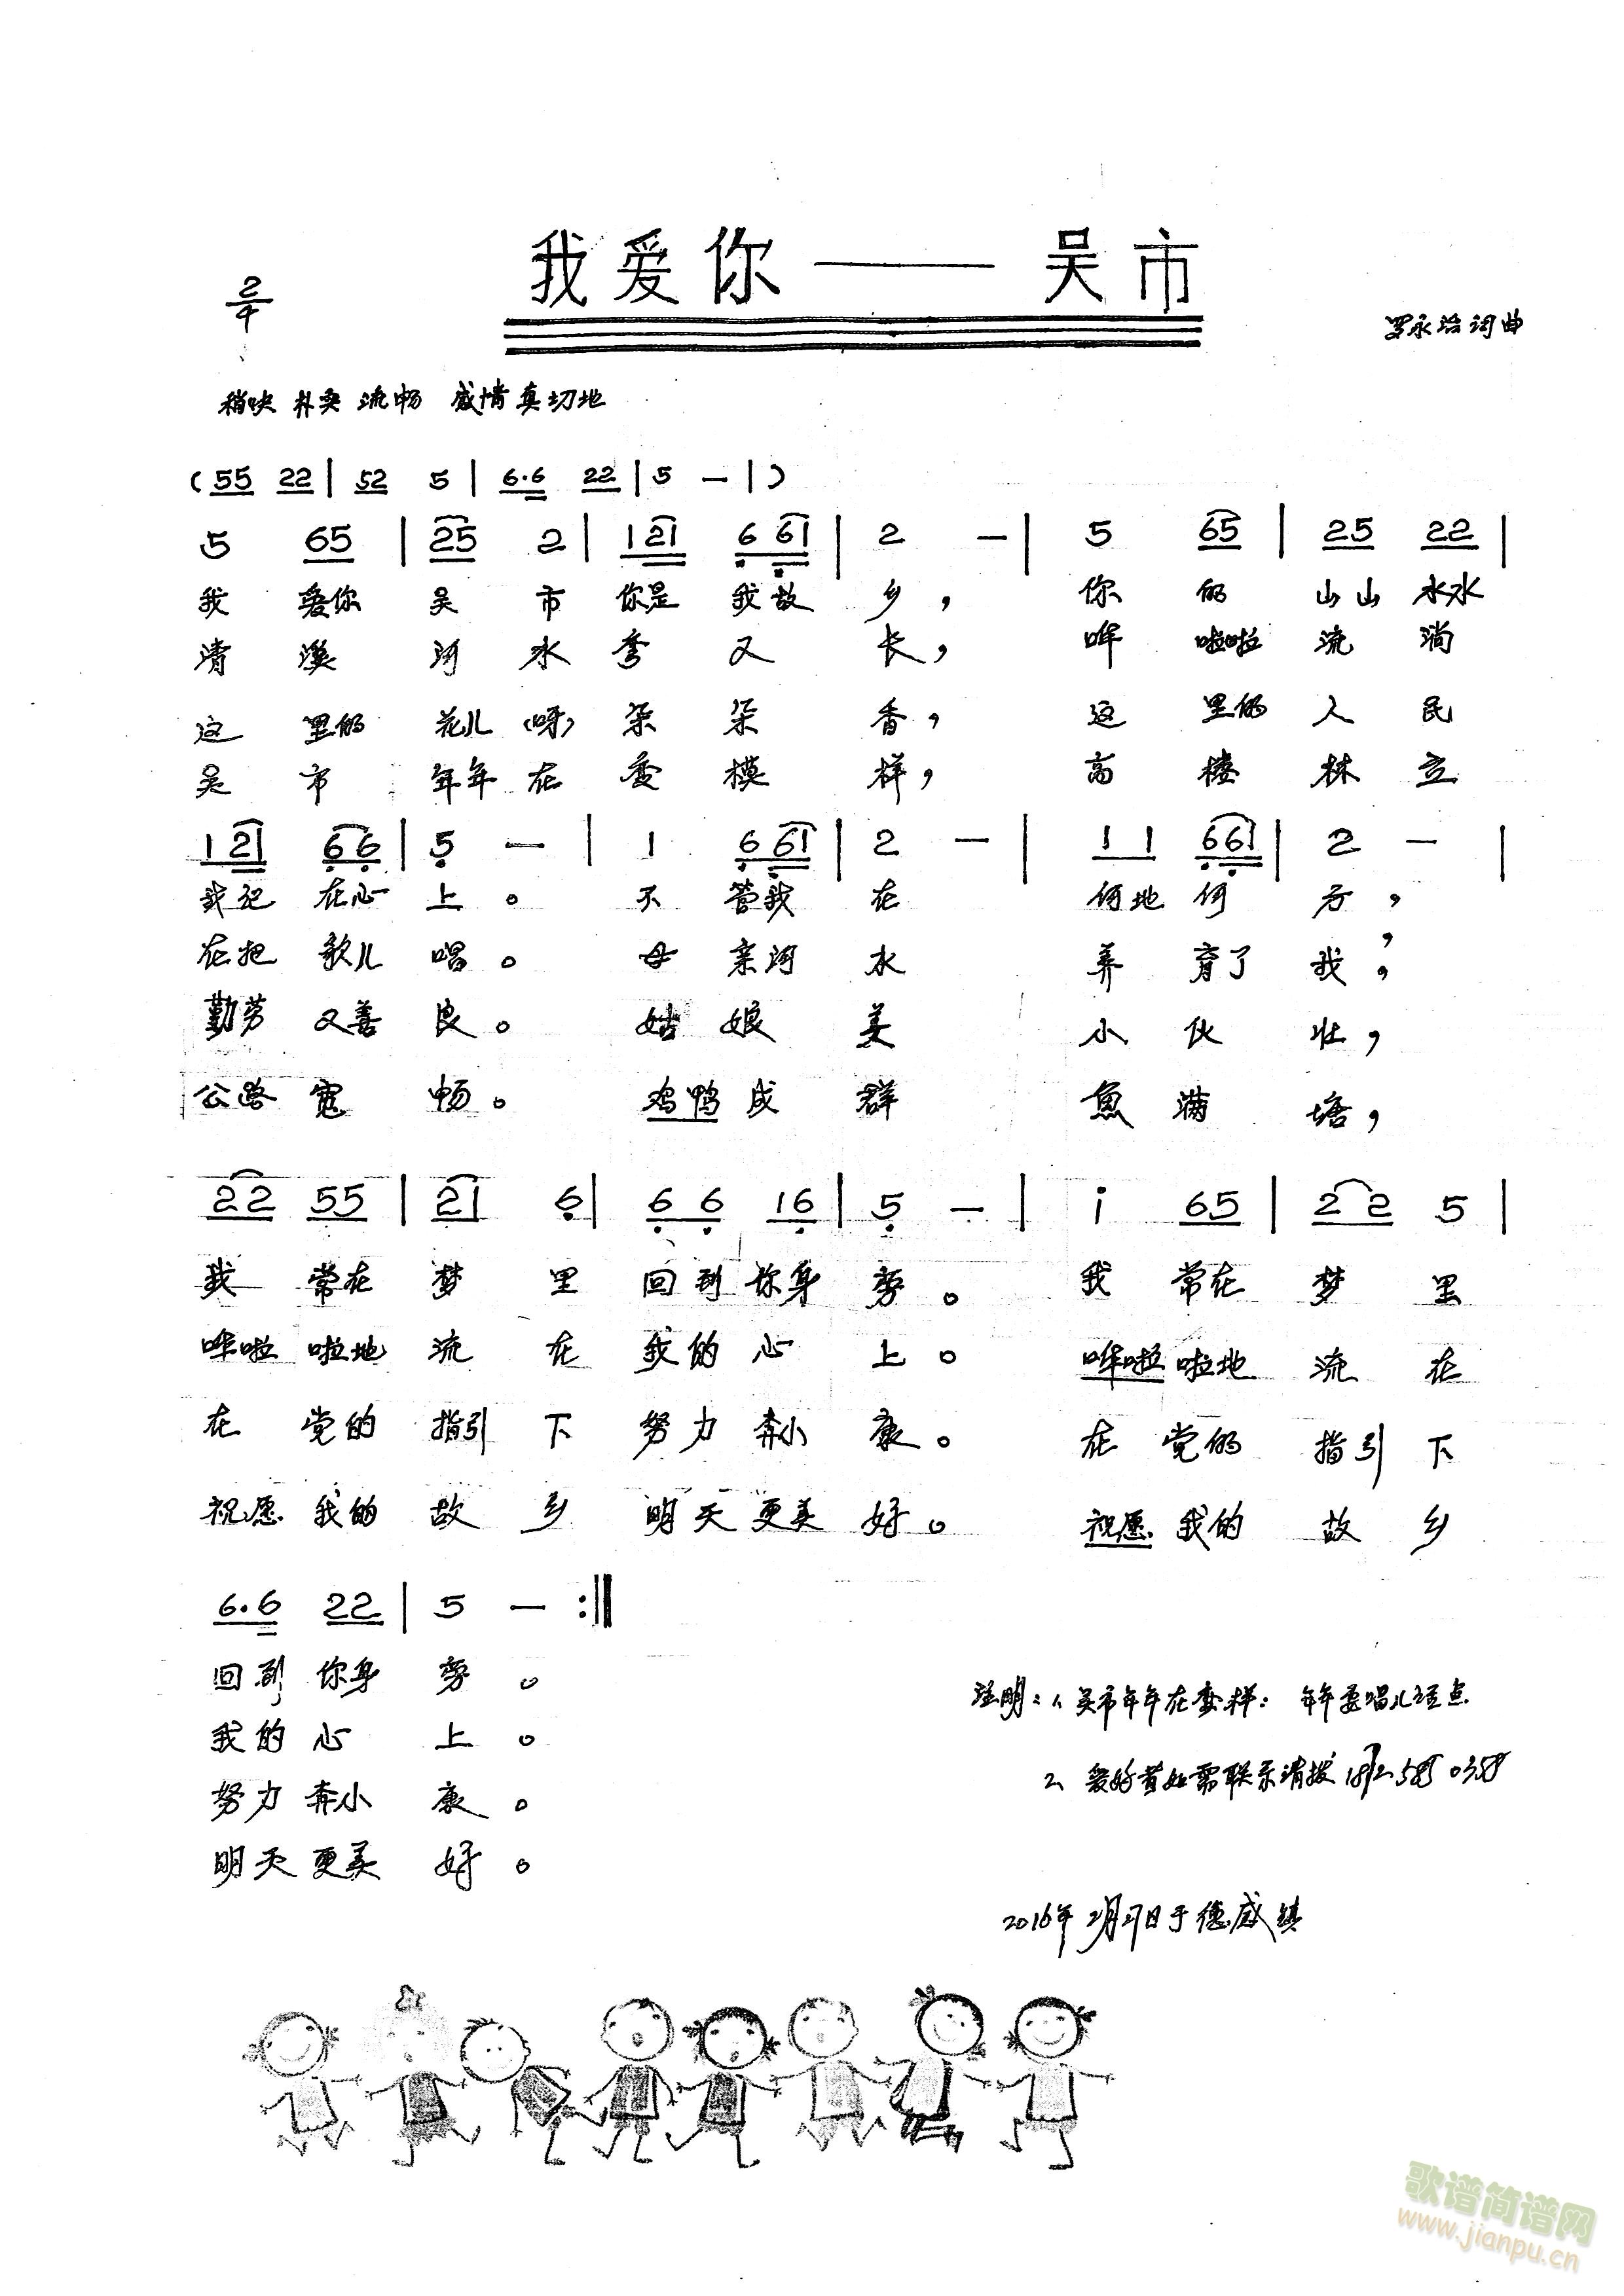 我爱你——吴市
2/4
罗永治词曲
稍快 朴实 流畅 感情真切地
(55 22|52 5|6·6 22|5 —|)
5 65|25 2|121 661|2 —|5 65|25 22|
我 爱你 吴 市 你是 我故 乡， 你 的 山山 水水
清 溪 河 水 弯 又 长， 哗 啦啦 流 淌
这 里的 花儿(呀) 朵 朵 香， 这 里的 人 民
吴 市 年年 在 变 模 样， 高 楼 林 立
121 66|5 —|1 661|2 —|11 661|2 —|
我记 在心 上。 不 管我 在 何地 何 方，
在把 歌儿 唱。 母 亲河 水 养 育了 我，
勤劳 又善 良。 姑 娘 美 小 伙 壮，
公路 宽 畅。 鸡鸭 成 群 魚 满 塘，
22 55|21 6|66 16|5 —|i 65|22 5|
我 常在 梦 里 回到 你身 旁。 我 常在 梦 里
哗啦 啦地 流 在 我的 心 上。 哗啦 啦地 流 在
在 党的 指引 下 努力 奔小 康。 在 党的 指引 下
祝愿 我的 故 乡 明天 更美 好。 祝愿 我的 故 乡
6·6 22|5 —:||
回到 你身 旁。
我的 心 上。
努力 奔小 康。
明天 更美 好。
注明：1、吴市年年在变样： 年年要唱儿话点
2、爱好者如需联系请拨
2016年2月7日于德感镇
歌谱简谱网
www.jianpu.cn